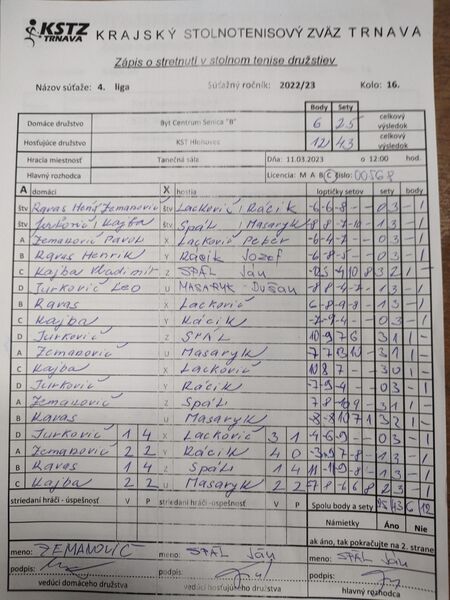 KSTZ
TRNAVA
KRAJSKÝ STOLNOTENISOVÝ ZVÄZ TRNAVA
Zápis o stretnutí v stolnom tenise družstiev
Názov súťaže: 4. liga Súťažný ročník: 2022/23 Kolo: 16.
Body Sety
Domáce družstvo Byt Centrum Senica "B" 6 25 celkový výsledok
Hosťujúce družstvo KST Hlohovec 12 43 celkový výsledok
Hracia miestnosť Tanečná sála Dňa: 11.03.2023 o 12:00 hod.
Hlavný rozhodca Licencia: M A B C číslo: 00568
A domáci X hostia loptičky setov sety body
štv Ravas Zemanovič štv Lackovič Rácik -6-6-8 - - 0 3 - 1
štv Jurkovič Kajba štv Spál Masaryk 1 3 - 1
A Zemanovič Pavol X Lackovič Peter -6-4-7 - - 0 3 - 1
B Ravas Henrik Y Rácik Jozef -6-8-5 - - 0 3 - 1
C Kajba Vladimír Z SPÁL Ján 3 2 1 -
D Jurkovič Leo U MASARYK Dušan 1 3 - 1
B Ravas X Lackovič 1 3 - 1
C Kajba Y Rácik -7-9-4 - - 0 3 - 1
D Jurkovič Z SPÁL 3 1 1 -
A Zemanovič U Masaryk 3 1 1 -
C Kajba X Lackovič 10 8 7 - - 3 0 1 -
D Jurkovič Y Rácik -7-9-4 - - 0 3 - 1
A Zemanovič Z Spál 3 1 1 -
B Ravas U Masaryk 3 2 1 -
D Jurkovič 1 4 X Lackovič 3 1 -4-6-9 - - 0 3 - 1
A Zemanovič 2 2 Y Rácik 4 0 1 3 - 1
B Ravas 1 4 Z Spál 1 4 1 3 - 1
C Kajba 2 2 U Masaryk 2 2 2 3 - 1
striedaní hráči - úspešnosť V P striedaní hráči - úspešnosť V P Spolu body a sety 25 43 6 12
Námietky Áno Nie
ak áno, tak pokračujte na 2. strane
meno: ZEMANOVIČ meno: SPÁL Ján meno: SPÁL Ján
podpis: podpis: podpis:
vedúci domáceho družstva vedúci hosťujúceho družstva hlavný rozhodca